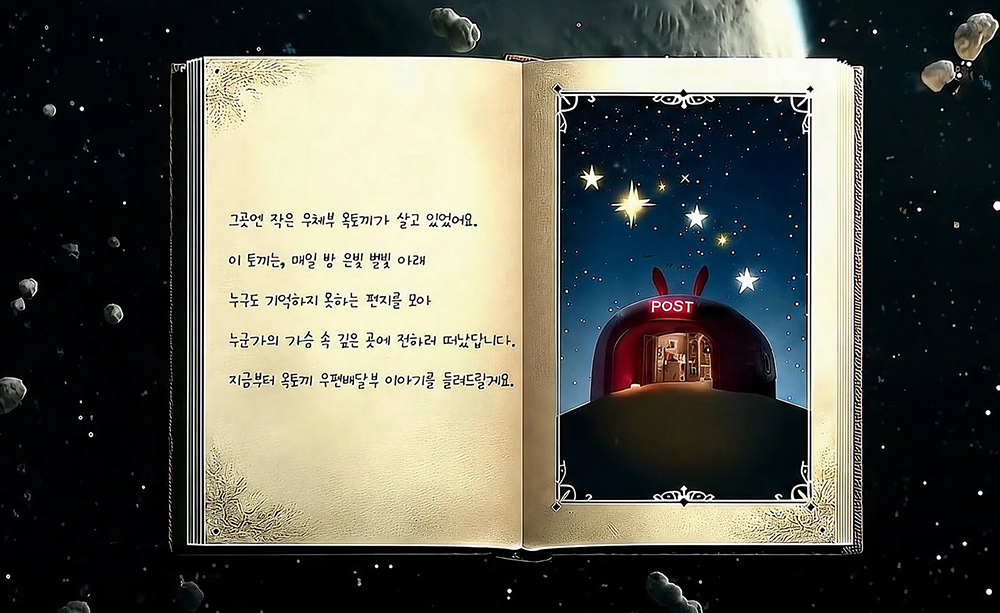 그곳엔 작은 우체부 옥토끼가 살고 있었어요.
이 토끼는, 매일 밤 은빛 별빛 아래
누구도 기억하지 못하는 편지를 모아
누군가의 가슴 속 깊은 곳에 전하러 떠났답니다.
지금부터 옥토끼 우편배달부 이야기를 들려드릴게요.
POST